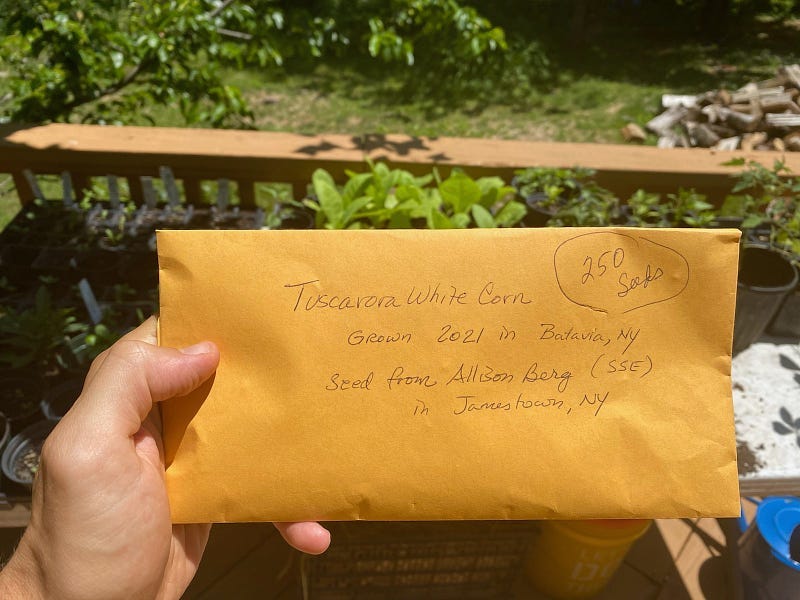 250
Seeds
Tuscarora White Corn
Grown 2021 in Batavia, NY
Seed from Allison Berg (SSE)
in Jamestown, NY